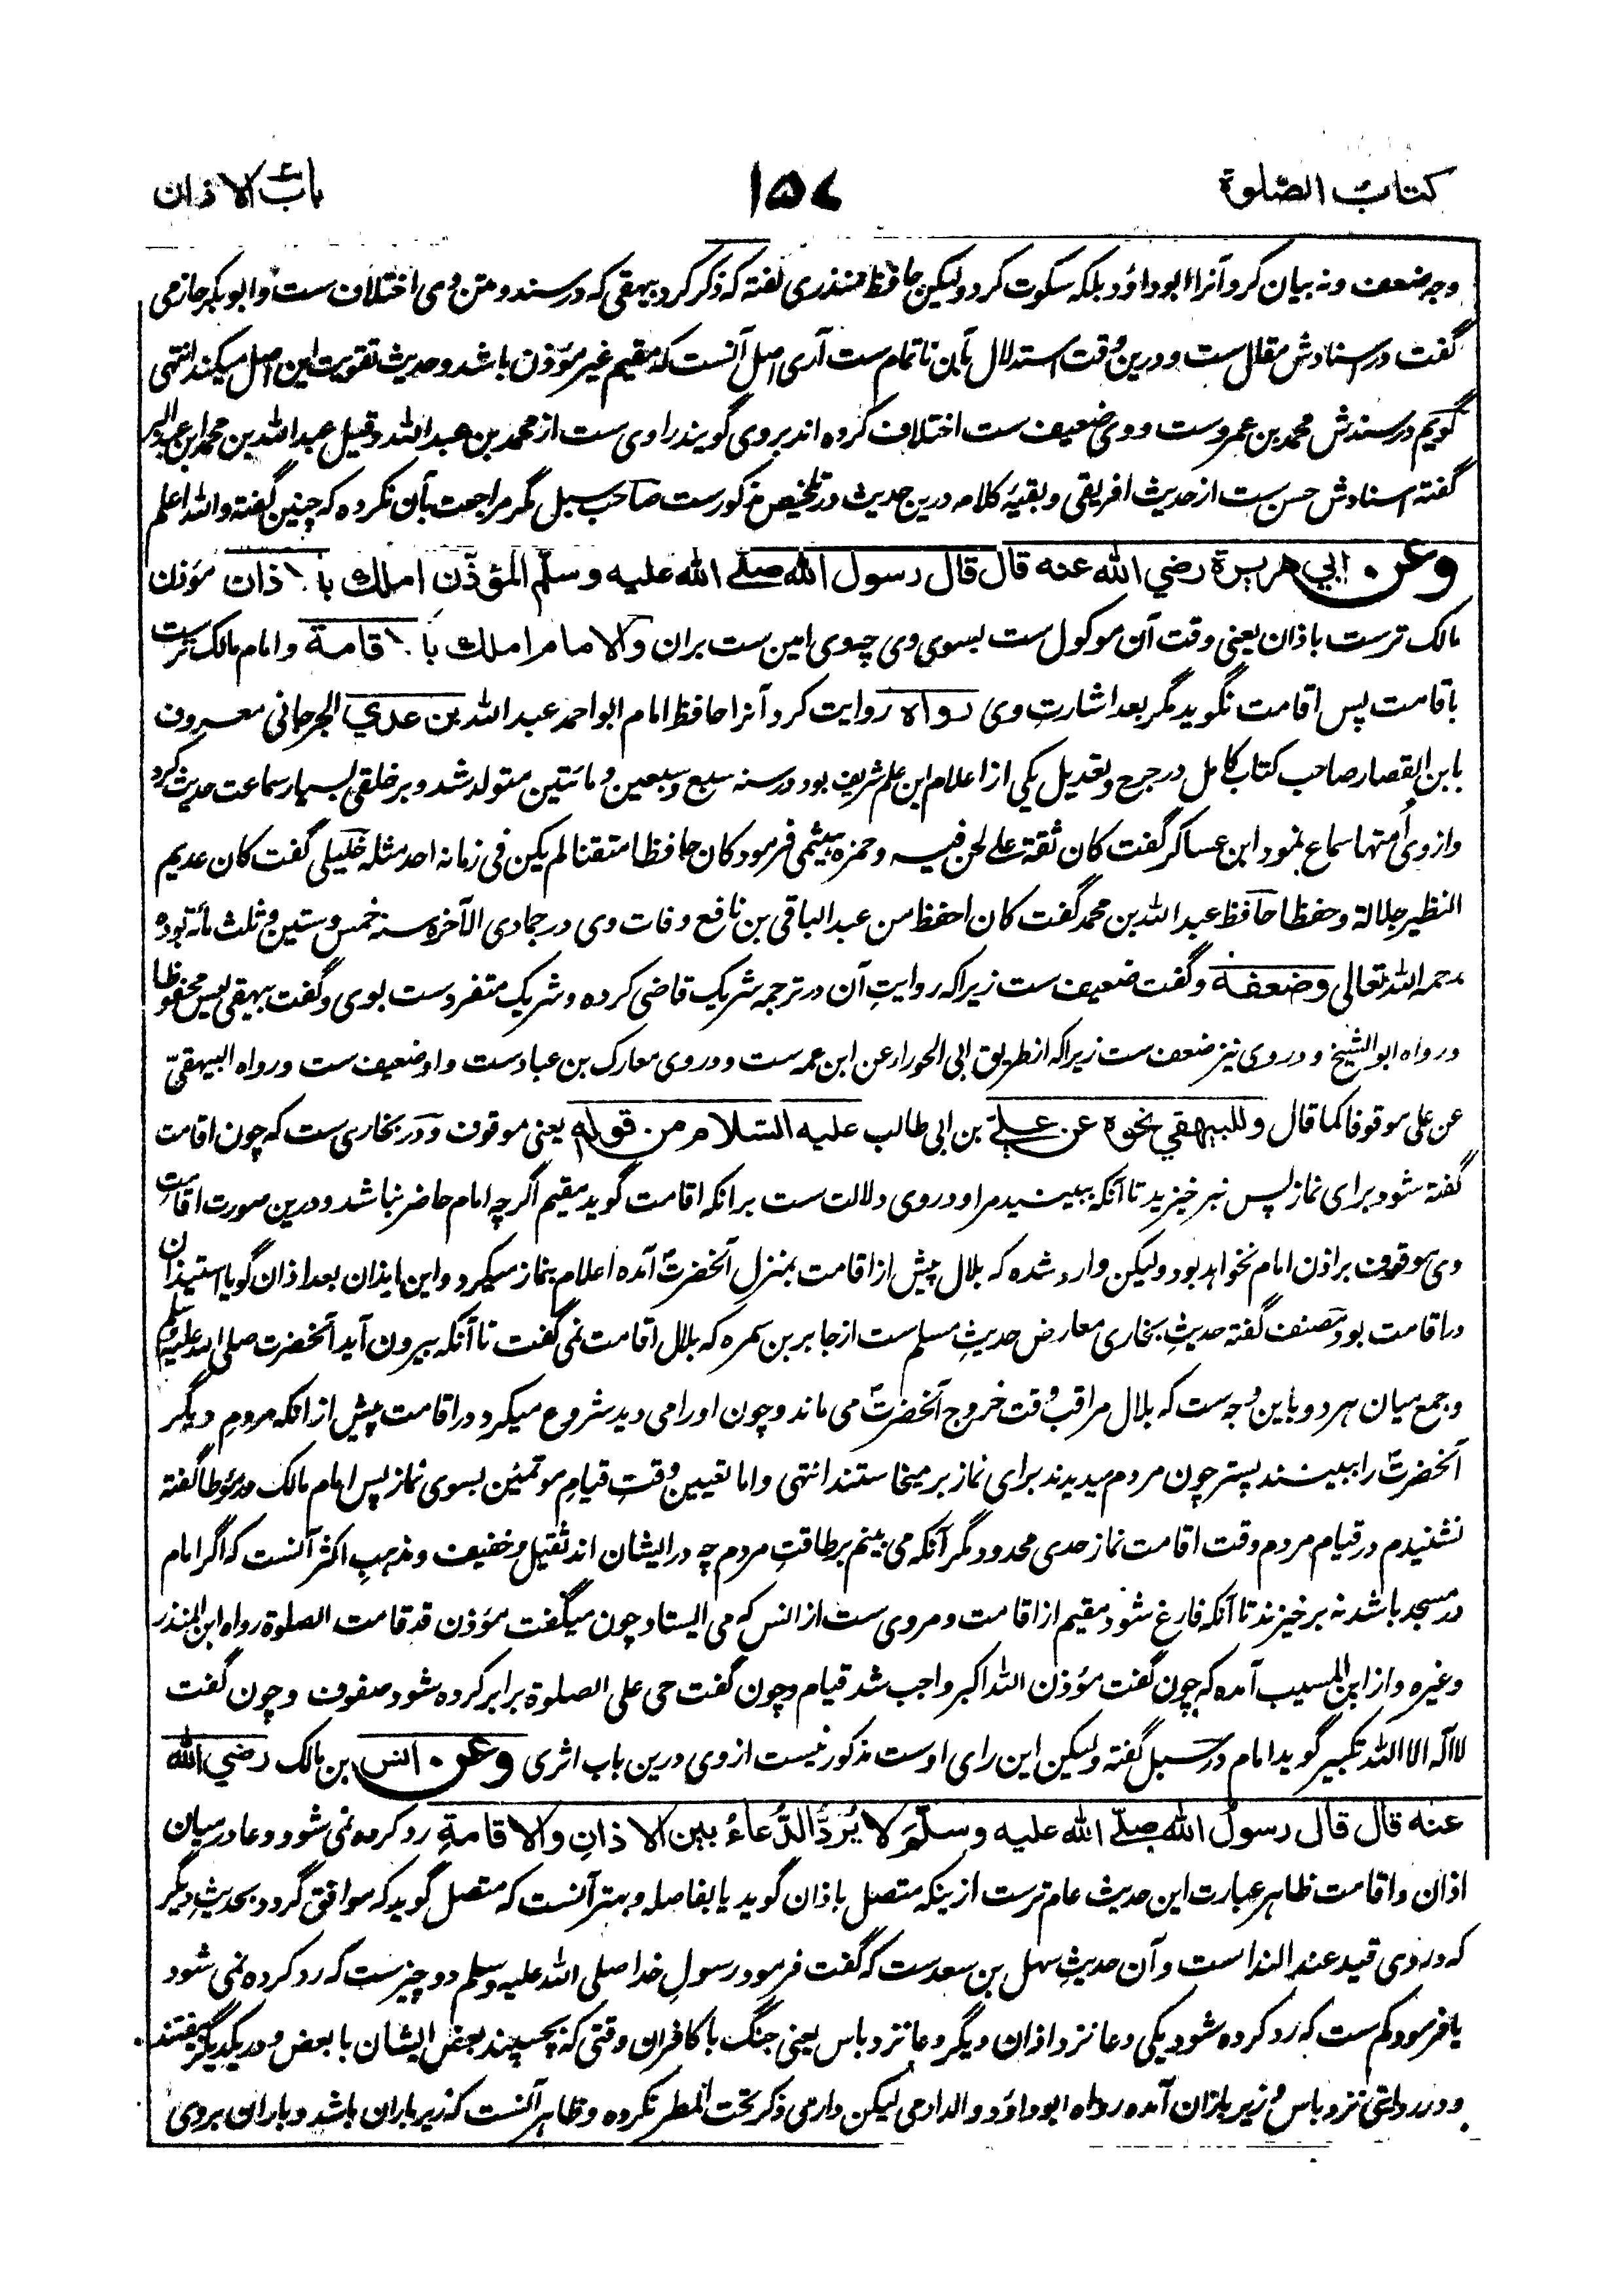 کتاب الصلوة ۱۵۷ باب الاذان
وجه ضعف و نه بیان کرد آنرا ابو داود بلکه سکوت کرد و لیکن حافظ منذری گفته که ذکر کرد بیهقی که در سند و متن وی اختلاف ست و ابو بکر حازمی
گفت در اسنادش مقال ست و درین وقت استدلال بآن ناتمام ست آری اصل آنست که مقیم غیر مؤذن باشد و حدیث تقویت این اصل میکند انتهی
گویم در سندش محمد بن عمرو ست و وی ضعیف ست اختلاف کرده اند بروی گویند راوی ست از محمد بن عبد الله و قیل عبد الله بن محمد ابن عبد البر
گفته اسنادش حسن ست از حدیث افریقی و بقیهٔ کلام درین حدیث در تلخیص مذکور ست صاحب سبل مگر مراجعت بآن نکرده که چنین گفته و الله اعلم
وعن ابي هريرة رضي الله عنه قال قال رسول الله صلے الله عليه وسلم المؤذن املك بالاذان مؤذن
مالک ترست باذان یعنی وقت آن موکول ست بسوی وی چه وی امین ست بران والامام املك بالاقامة و امام مالک ترست
باقامت پس اقامت نگوید مگر بعد اشارت وی رواه روایت کرد آنرا حافظ امام ابو احمد عبد الله بن عدي الجرجانی معروف
بابن القصار صاحب کتاب کامل در جرح و تعدیل یکی از اعلام این علم شریف بود در سنه سبع و سبعین و مائتین متولد شد و بر خلقی بسیار سماعت حدیث کرد
و از وی اُمتها سماع نمود ابن عساکر گفت کان ثقة علی لحن فیه و حمزه سهمی فرمود کان حافظا متقنا لم یکن فی زمانه احد مثله خلیلی گفت کان عدیم
النظیر جلالة و حفظا حافظ عبد الله بن محمد گفت کان احفظ من عبد الباقی بن نافع وفات وی در جمادی الآخره سنه خمس و ستین و ثلث مائة بوده
رحمه الله تعالی وضعفه و گفت ضعیف ست زیرا که روایت آن در ترجمه شریک قاضی کرده و شریک متفرد ست بوی و گفت بیهقی لیس محفوظا
و رواه ابو الشیخ و در وی نیز ضعف ست زیرا که از طریق ابی الجوزاء عن ابن عمر ست و در وی معارک بن عباد ست و او ضعیف ست و رواه البیهقیّ
عن علی موقوفا کما قال وللبيهقي نحوه عن علي بن ابی طالب عليه السلام من قوله یعنی موقوف و در بخاری ست که چون اقامت
گفته شود برای نماز پس نبر خیزید تا آنکه ببینید مرا و در وی دلالت ست بر آنکه اقامت گوید مقیم اگر چه امام حاضر نباشد و درین صورت اقامت
وی موقوف بر اذن امام نخواهد بود و لیکن وارد شده که بلال پیش از اقامت بمنزل آنحضرتؐ آمده اعلام بنماز میکرد و این ایذان بعد اذان گویا استیذان
در اقامت بود مصنف گفته حدیثِ بخاری معارض حدیثِ مسلم ست از جابر بن سمره که بلال اقامت نمی گفت تا آنکه بیرون آید آنحضرت صلی الله علیه وسلم
و جمع میان هر دو باین وجه ست که بلال مراقب وقت خروج آنحضرتؐ می ماند و چون او را می دید شروع میکرد در اقامت پیش از آنکه مردم دیگر
آنحضرتؐ را ببینند پستر چون مردم میدیدند برای نماز بر میخاستند انتهی و اما تعیین وقتِ قیامِ موتمین بسوی نماز پس امام مالک در موطا گفته
نشنیدم در قیام مردم وقت اقامت نماز حدی محدود مگر آنکه می بینم بر طاقتِ مردم چه در ایشان اند ثقیل و خفیف و مذهبِ اکثر آنست که اگر امام
در مسجد باشد نه بر خیزند تا آنکه فارغ شود مقیم از اقامت و مروی ست از انس که می ایستاد چون میگفت مؤذن قد قامت الصلوة رواه ابن المنذر
و غیره و از ابن المسیب آمده که چون گفت مؤذن الله اکبر واجب شد قیام و چون گفت حی علی الصلوة برابر کرده شود صفوف و چون گفت
لا اله الا الله تکبیر گوید امام در سبل گفته و لیکن این رای اوست مذکور نیست از وی درین باب اثری وعن انس بن مالک رضي الله
عنه قال قال رسول الله صلے الله عليه وسلم لا يُرَدُّ الدُّعاءُ بين الاذانِ والاقامةِ رد کرده نمی شود دعا در میان
اذان و اقامت ظاهر عبارت این حدیث عام ترست ازینکه متصل باذان گوید یا بفاصله و بهتر آنست که متصل گوید که موافق گردد بحدیثِ دیگر
که در وی قید عند الندا است و آن حدیثِ سهل بن سعد ست که گفت فرمود رسولِ خدا صلی الله علیه وسلم دو چیزست که رد کرده نمی شود
یا فرمود کم ست که رد کرده شود یکی دعا نزد اذان دیگر دعا نزد باس یعنی جنگ با کافران وقتی که بچسپند بعض ایشان با بعض و در یکدیگر بیفتند
و در روایتی نزد باس و زیر باران آمده رواه ابو داود و الدارمی لیکن دارمی ذکر تحت المطر نکرده و ظاهر آنست که زیر باران باشد و باران بروی